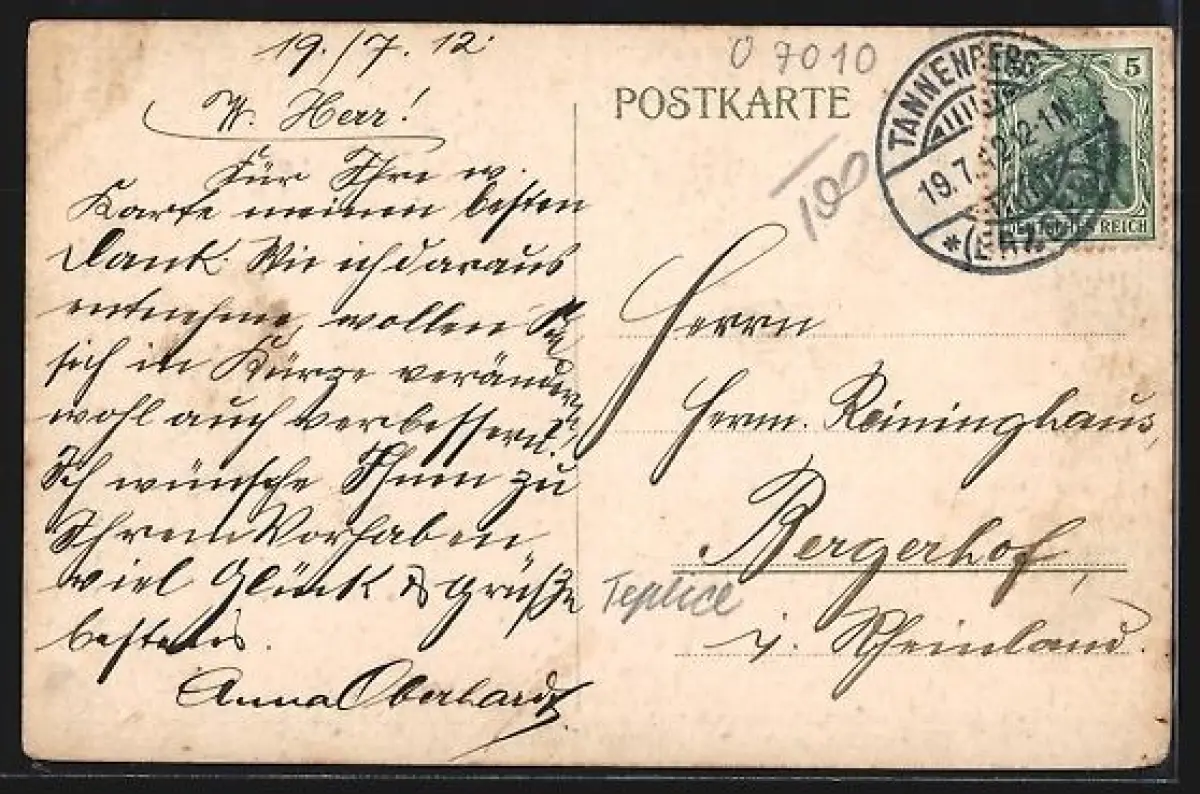 19./7. 12.
W. Herr!
Für Ihre w.
Karte meinen besten
Dank. Wie ich daraus
entnehme, wollen Sie
sich in Kürze verändern
wohl auch verbessern?
Ich wünsche Ihnen zu
Ihrem Vorhaben
viel Glück & grüße
bestens.
Anna Oberhardt
O 7010
POSTKARTE
100
TANNENBERG
19.7.12. 2-1N
* (ERZGEB.)
5
DEUTSCHES REICH
Herrn
Herm. Reininghaus,
Bergerhof,
i. Rheinland.
Teplice